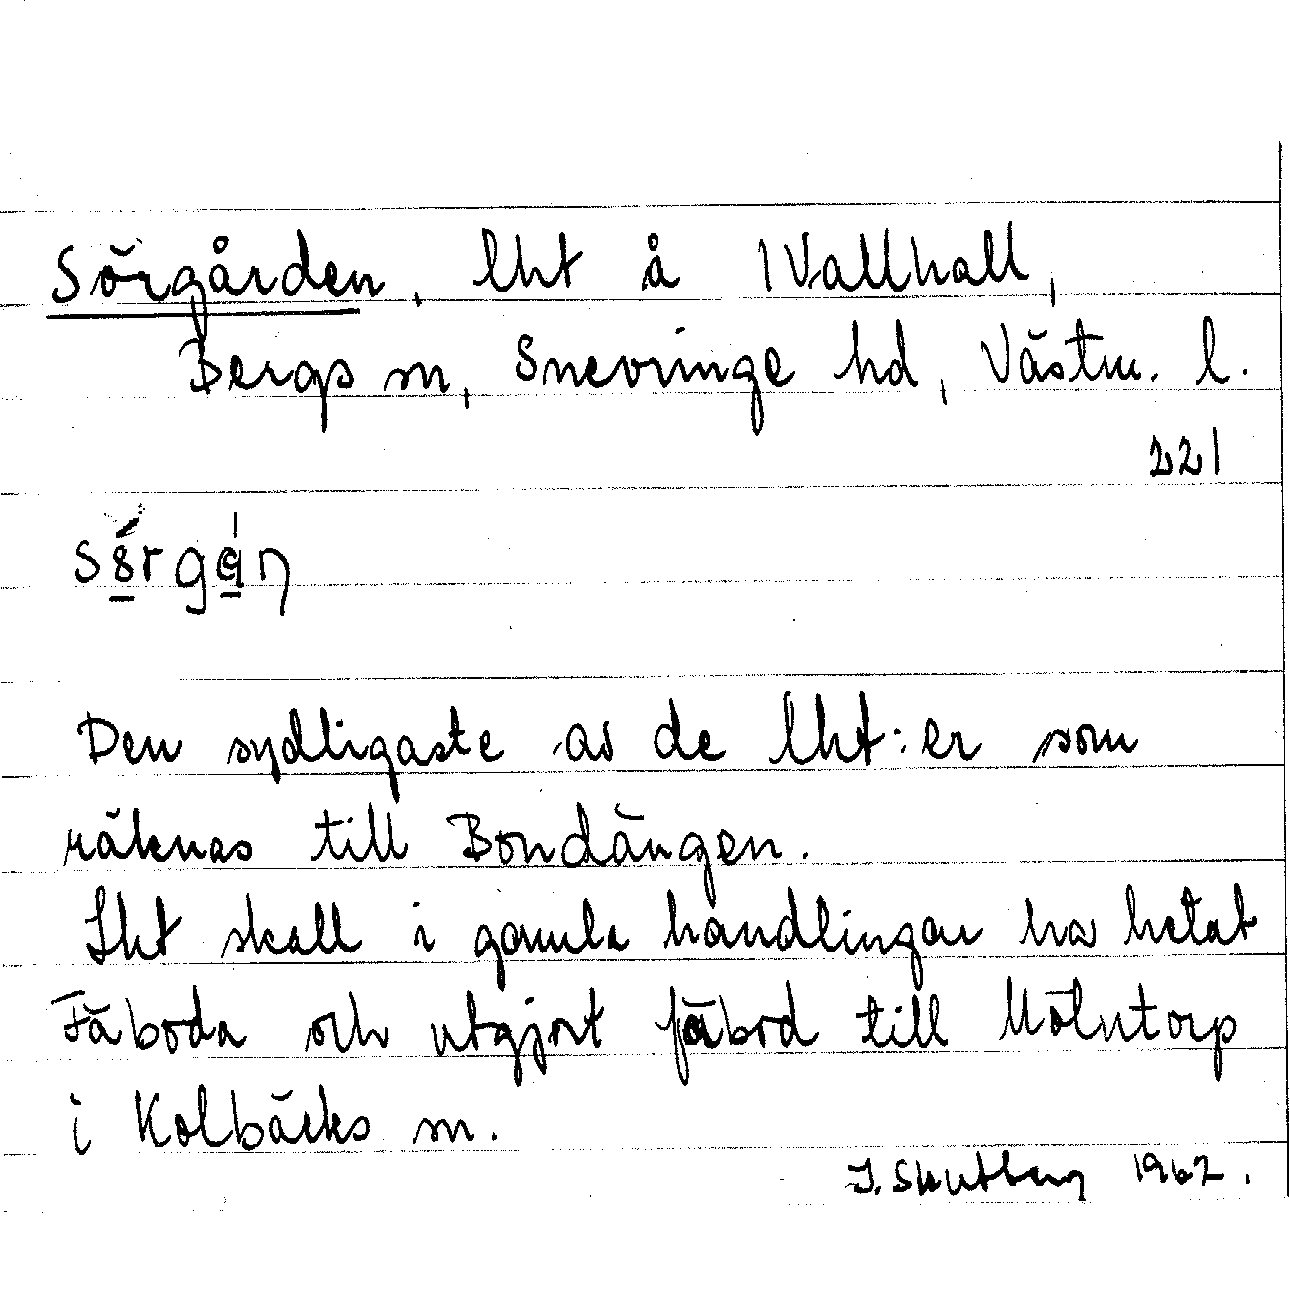 Sörgården, lht å 1 Vallhall,
Bergs sn, Snevringe hd, Västm. l.
221
Den sydligaste av de lht:er som
räknas till Bondängen.
Lht skall i gamla handlingar ha hetat
Fäboda och utgjort fäbod till Mölntorp
i Kolbäcks sn.
J. Skutberg 1962.